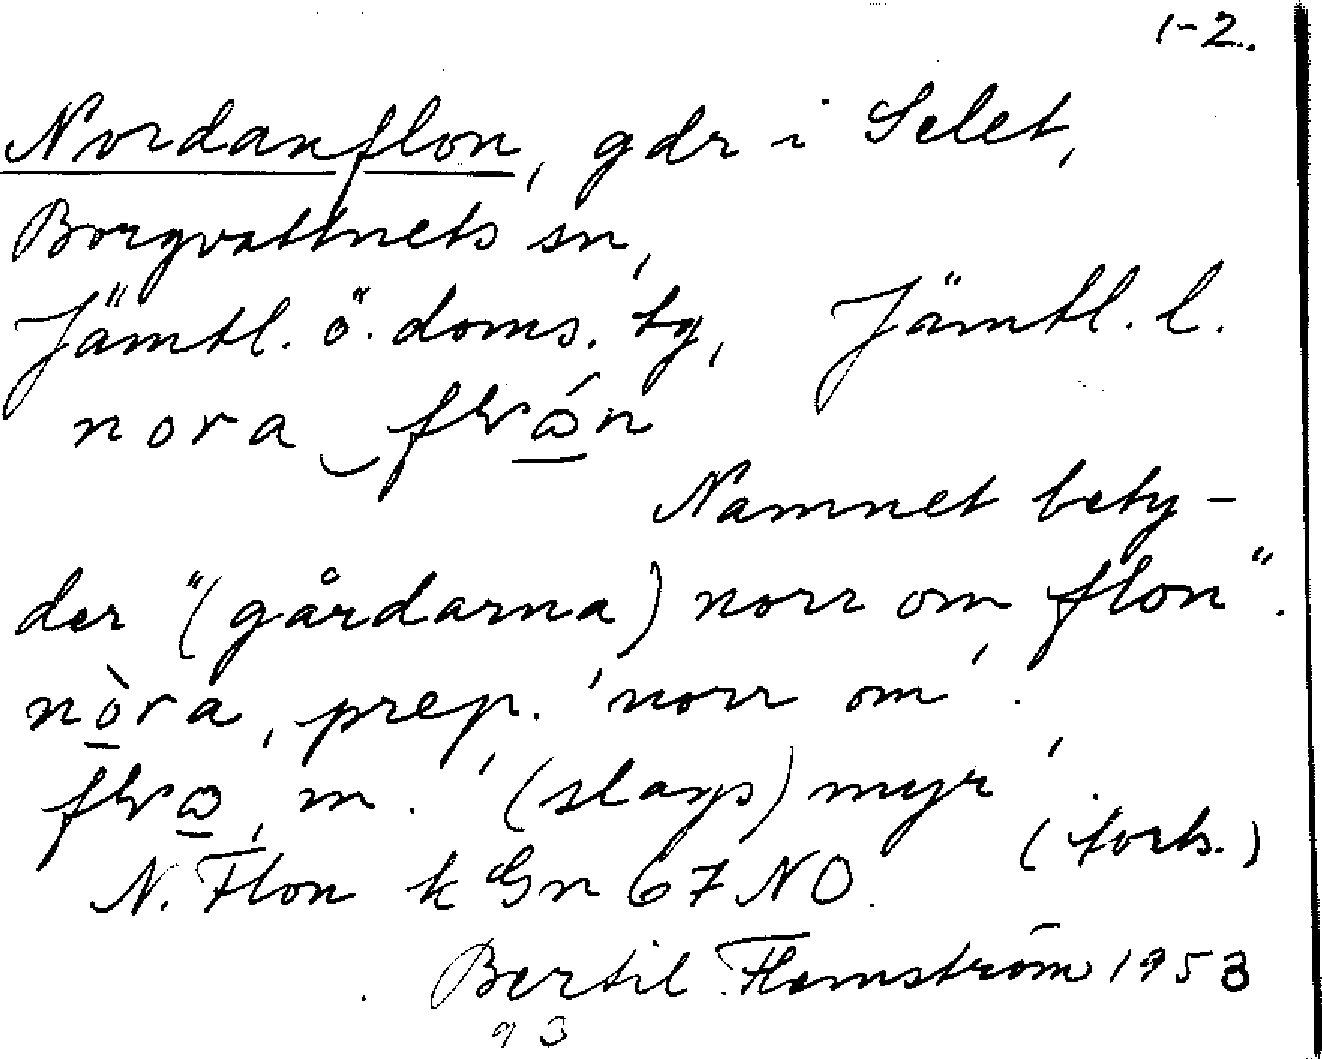 1-2.
Nordanflon, gdr i Selet,
Borgvattnets sn,
Jämtl. ö. doms. tg, Jämtl. l.
nora
Namnet bety-
der "(gårdarna) norr om flon".
nòra, prep. 'norr om'.
m. '(slags) myr'.
(forts.)
N. Flon k Gn 67 NO.
Bertil Flemström 1953
93